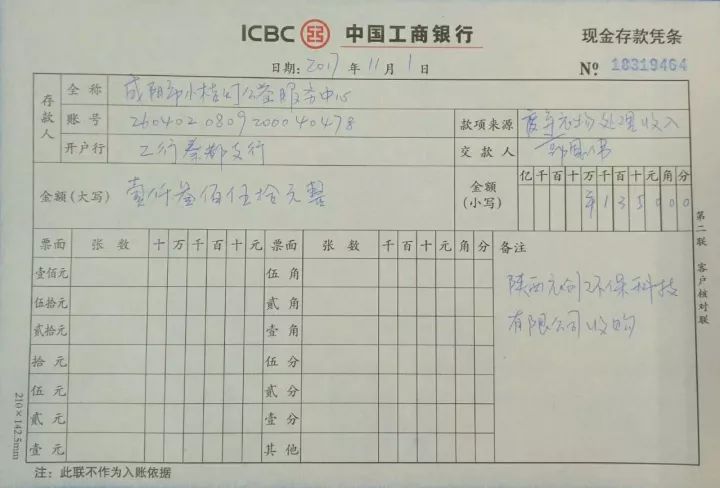 ICBC 中国工商银行
现金存款凭条
日期: 2017 年 11 月 1 日
№ 18319464
存款人
全 称 咸阳市小桔灯公益服务中心
账 号 2604020809200040478
开户行 工行秦都支行
款项来源 废弃衣物处理收入
交 款 人
金额(大写) 壹仟叁佰伍拾元整
金额(小写)
亿 千 百 十 万 千 百 十 元 角 分
¥ 1 3 5 0 0 0
票面 张 数 十 万 千 百 十 元 票面 张 数 千 百 十 元 角 分 备注
壹佰元 伍 角
伍拾元 贰 角
贰拾元 壹 角
拾 元 伍 分
伍 元 贰 分
贰 元 壹 分
壹 元 其 他
陕西元创环保科技
有限公司收购
第二联 客户核对联
210×142.5mm
注: 此联不作为入账依据